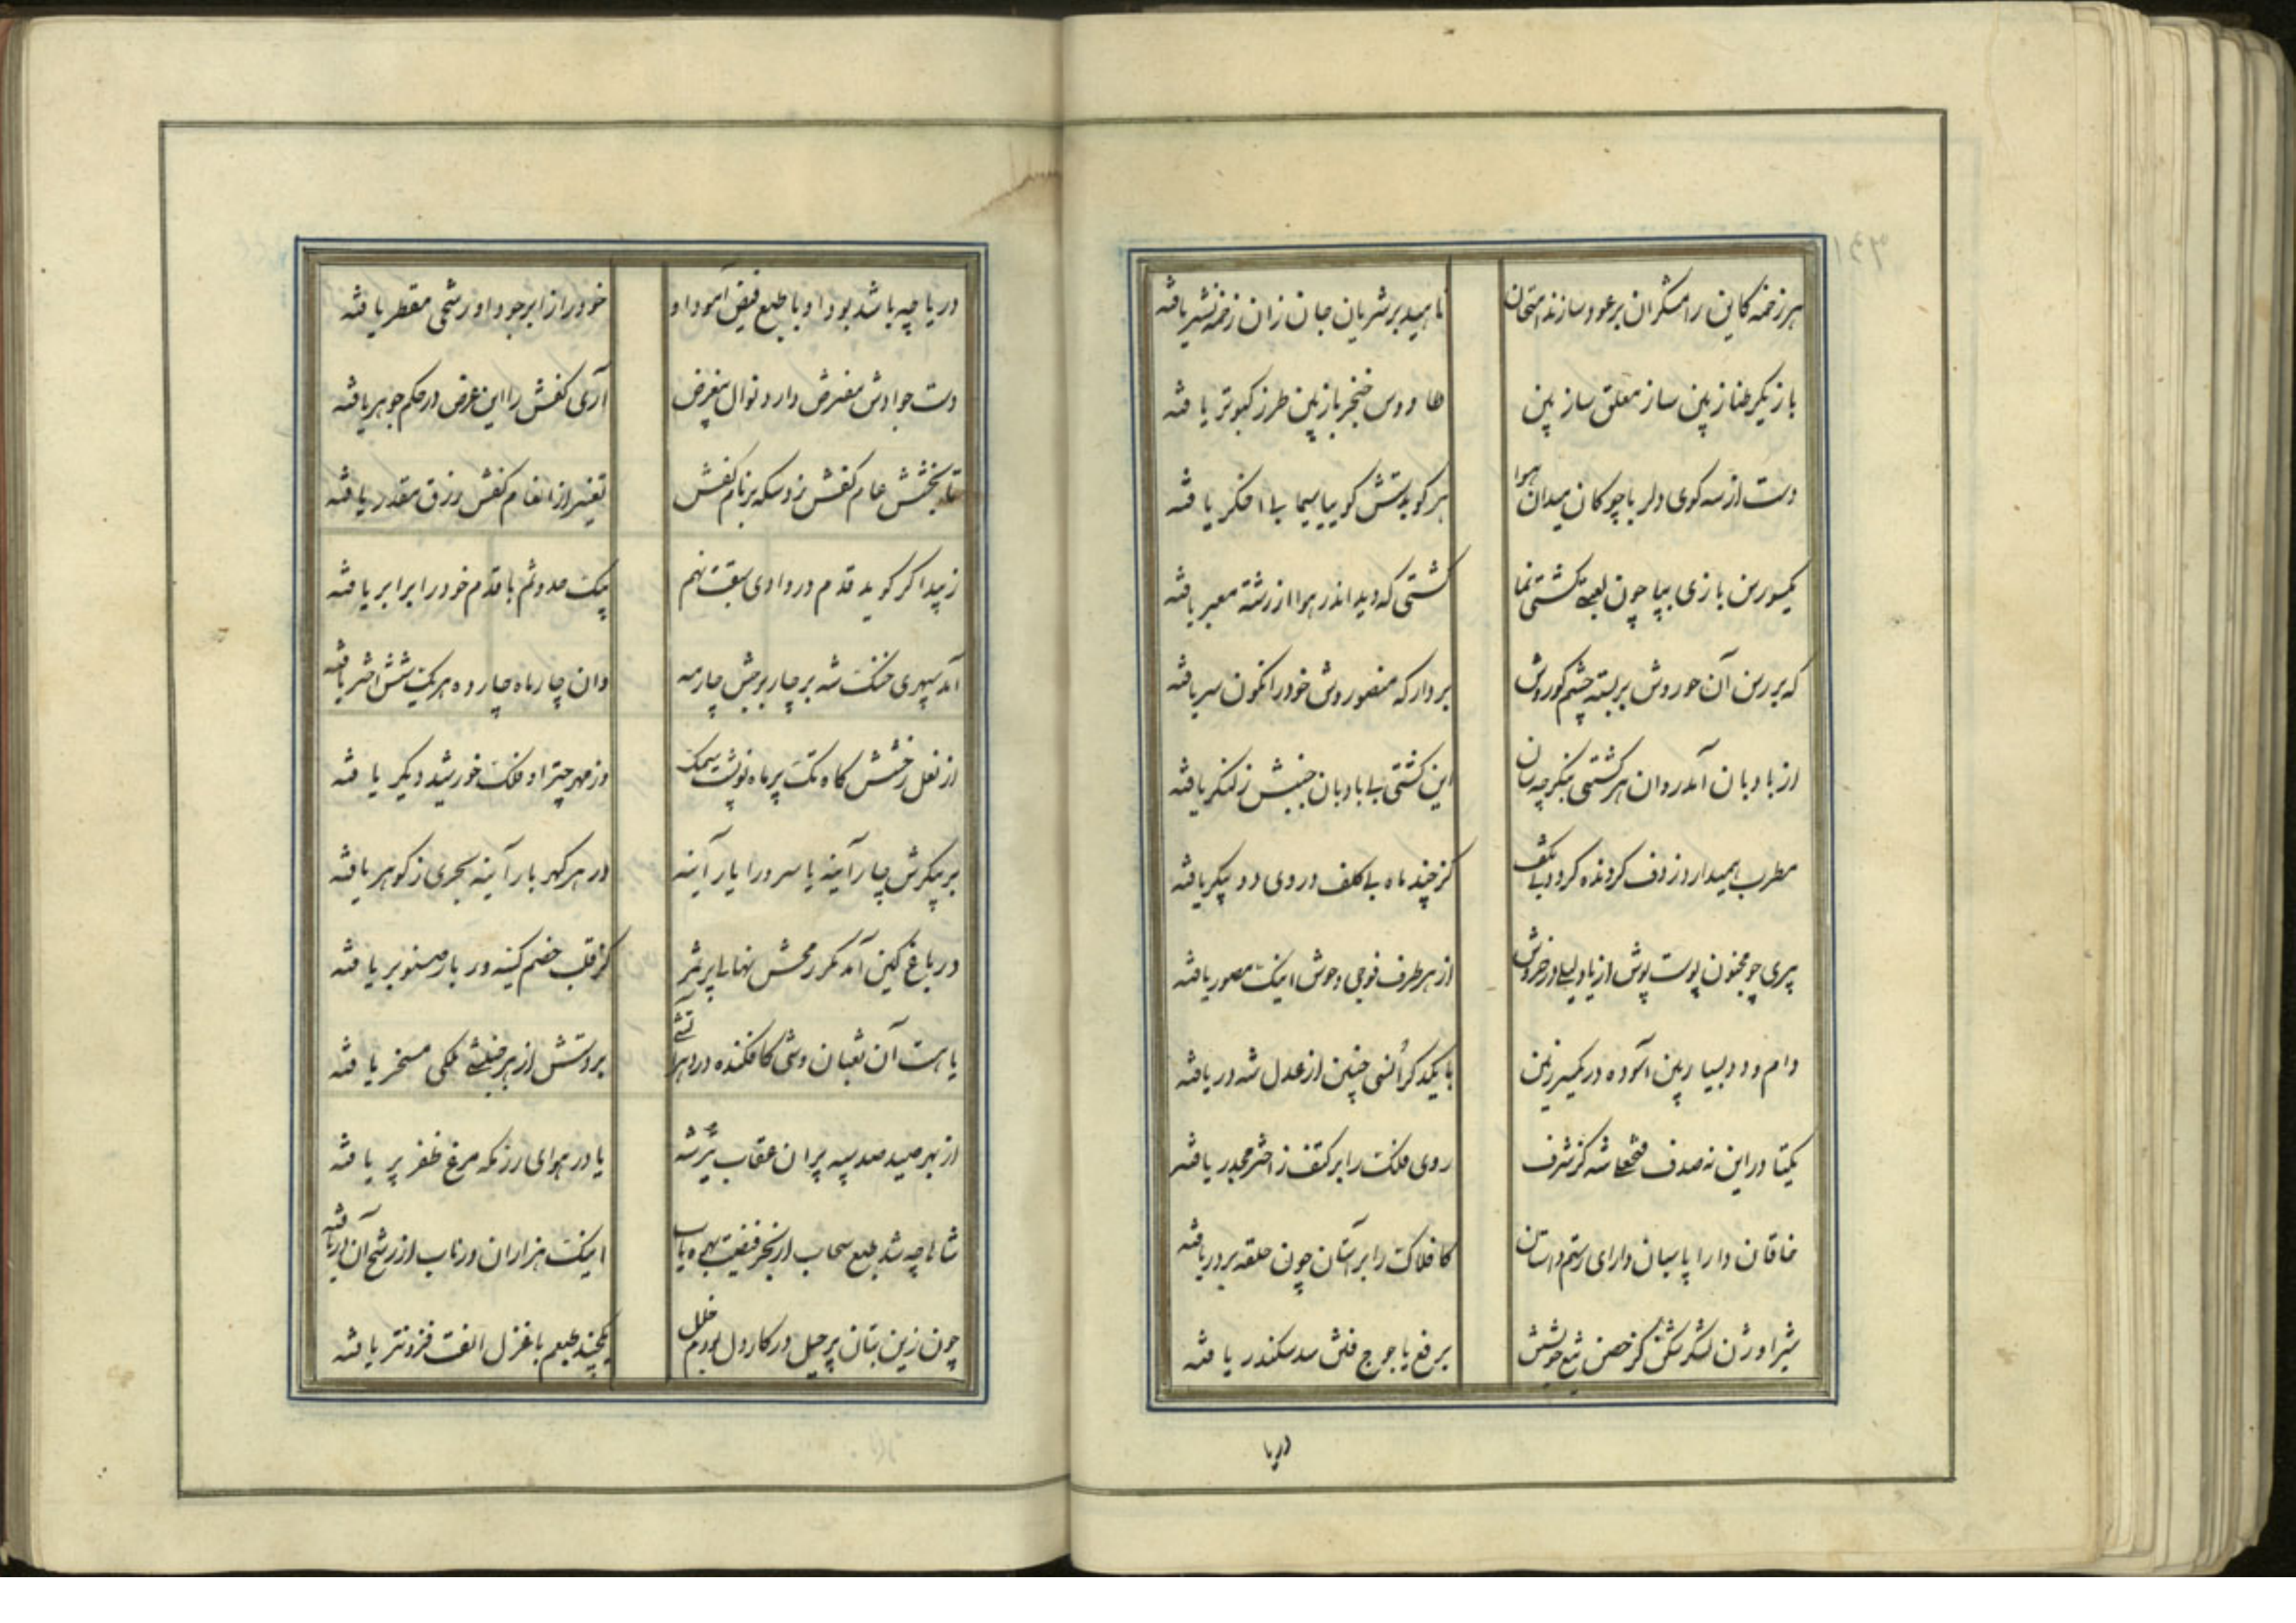 هر زخمه کاین رامشگران بر عود سازند امتحان ناهید بر شریان جان زان زخمه نشتر یافته
بازیگر طناز بین ساز معلق ساز بین طاووس خنجر باز بین طرز کبوتر یافته
دست از سه کوی دلربا چوکان میدان هوا هر کو بدستش کوییا سیماب اخکر یافته
یکسو رسن بازی بپا چون لعبتی کشتی نما کشتی که دید اندر هوا از رشته معبر یافته
که بر رسن آن حوروش بر بسته چشم کوروش بر دار که منصوروش خود را نکون سر یافته
از بادبان آمد روان هر کشتی بنکر چه سان این کشتی بی بادبان جنبش ز لنکر یافته
مطرب همیدار وز دف کردنده کرد کز چند ماه بی کلف در وی دو پیکر یافته
پیری چو مجنون پوست پوش از یاد لیلی در خروش از هر طرف فوجی وحوش اینک مصور یافته
دام و دد بسیار بین آسوده در یکسر زمین با یکدکر انسی چنین از عدل شه در یافته
یکتا در این نه صدف فتحعلی شه کز شرف روی فلک را بر کتف ز اختر مجدر یافته
خاقان دارا پاسبان دارای رستم داستان کافلاک را بر آستان چون حلقه بر در یافته
شیر اوژن لشکر شکن کز حصن تیغ بر دفع یاجوج فتن سد سکندر یافته
دریا
دریا چه باشد بود او با طبع فیض آمود او خود را ز ابر جود او رشحی مقطر یافته
دست جوادش مفترض دارد نوال بیغرض آری کفش را این عرض در حکم جوهر یافته
تا بخشش عام کفش زد سکه بر نام کفش تغییر از انعام کفش رزق مقدر یافته
زیبد اکر کوید قدم در وادی سبقت نهم پیک حدوثم با قدم خود را برابر یافته
آمد سپهری خنک شه بر چار برجش چار مه وان چار ماه چارده هر یک شش اختر یافته
از نعل رخشش کاه تک پر ماه نو پشت سمک وز مهر چتر او فلک خورشید دیکر یافته
بر پیکرش چار آینه یا سرو را یار آینه در هر کهر بار آینه بحری ز کوهر یافته
در باغ کین آمد مکر رمحش نهالی پر ثمر کز قلب خصم کینه ور بار صنوبر یافته
یا هست آن ثعبان وشی کافکنده در دهر آتشی بر دستش از هر جنبشی ملکی مسخر یافته
از بهر صید صد سپه پران عقاب تیر شه یا در هوای رزمکه مرغ ظفر پر یافته
شاها چه شد طبع سحاب از بحر فیضت بهره یاب اینک هزاران در ناب از رشح آن در یافته
چون زین بتان پر حیل در کار دل بودم خلل یکچند طبعم با غزل الفت فزونتر یافته